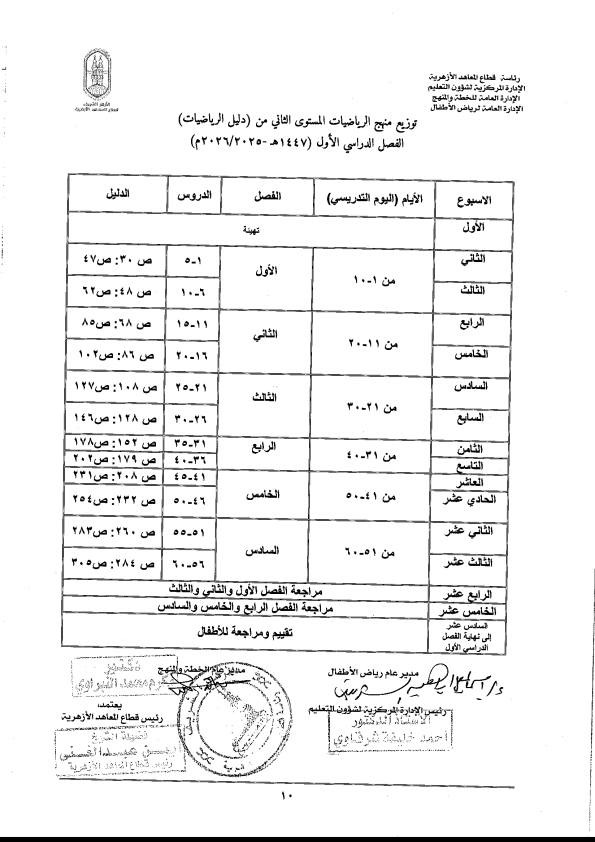 رئاسة قطاع المعاهد الأزهرية
الإدارة المركزية لشؤون التعليم
الإدارة العامة للخطة والمنهج
الإدارة العامة لرياض الأطفال
الأزهر الشريف
قطاع المعاهد الأزهرية
توزيع منهج الرياضيات المستوى الثاني من (دليل الرياضيات)
الفصل الدراسي الأول (١٤٤٧هـ -٢٠٢٦/٢٠٢٥م)
الاسبوع الأيام (اليوم التدريسي) الفصل الدروس الدليل
الأول تهيئة
الثاني من ١-١٠ الأول ١-٥ ص ٣٠: ص٤٧
الثالث ٦-١٠ ص ٤٨: ص٦٢
الرابع من ١١-٢٠ الثاني ١١-١٥ ص ٦٨: ص٨٥
الخامس ١٦-٢٠ ص ٨٦: ص١٠٢
السادس من ٢١-٣٠ الثالث ٢١-٢٥ ص ١٠٨: ص١٢٧
السابع ٢٦-٣٠ ص ١٢٨: ص١٤٦
الثامن من ٣١-٤٠ الرابع ٣١-٣٥ ص ١٥٢: ص١٧٨
التاسع ٣٦-٤٠ ص ١٧٩: ص٢٠٢
العاشر من ٤١-٥٠ الخامس ٤١-٤٥ ص ٢٠٨: ص٢٣١
الحادي عشر ٤٦-٥٠ ص ٢٣٢: ص٢٥٤
الثاني عشر من ٥١-٦٠ السادس ٥١-٥٥ ص ٢٦٠: ص٢٨٣
الثالث عشر ٥٦-٦٠ ص ٢٨٤: ص٣٠٥
الرابع عشر مراجعة الفصل الأول والثاني والثالث
الخامس عشر مراجعة الفصل الرابع والخامس والسادس
السادس عشر
إلى نهاية الفصل
الدراسي الأول
تقييم ومراجعة للأطفال
مدير عام رياض الأطفال
مدير عام الخطة والمنهج
رئيس الإدارة المركزية لشؤون التعليم
الأستاذ الدكتور
احمد خليفة شرقاوي
يعتمد،
رئيس قطاع المعاهد الأزهرية
فضيلة الشيخ
رئيس قطاع المعاهد الأزهرية
١٠